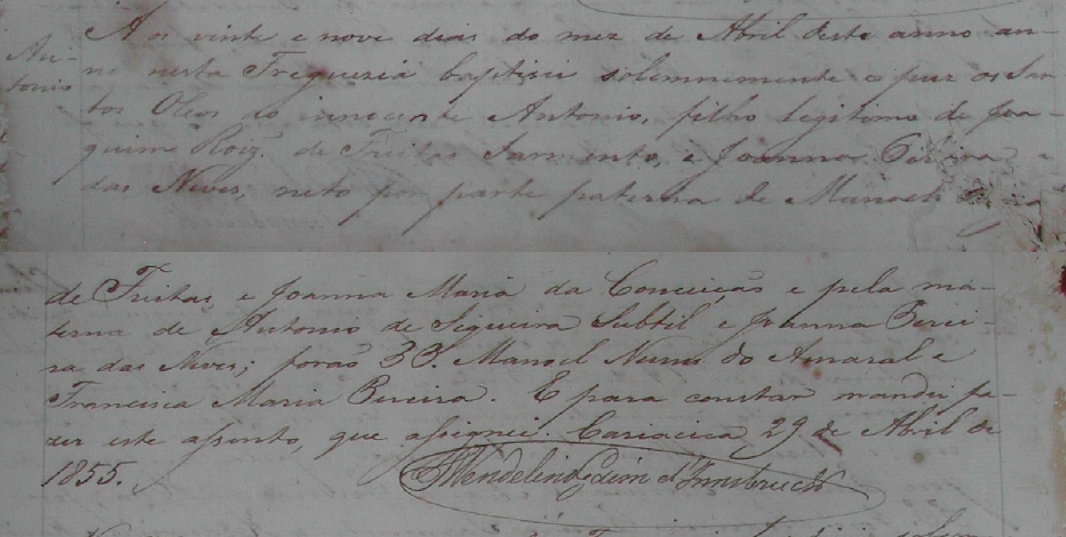 Aos vinte e nove dias do mez de Abril deste anno an-
Antonio
no nesta Freguezia baptisei solemnemente e puz os San
tos Oleos ao innocente Antonio, filho legitimo de Joa-
quim Roiz. de Freitas Sarmento, e Joanna Pereira
das Neves, neto por parte paterna de Manoel
de Freitas, e Joanna Maria da Conceição e pela ma-
terna de Antonio de Siqueira Subtil e Joanna Perei-
ra das Neves; forão PP. Manoel Nunes do Amaral e
Francisca Maria Pereira. E para constar mandei fa-
zer este assento, que assignei. Cariacica, 29 de Abril de
1855.
Wendelino d'Innsbruck